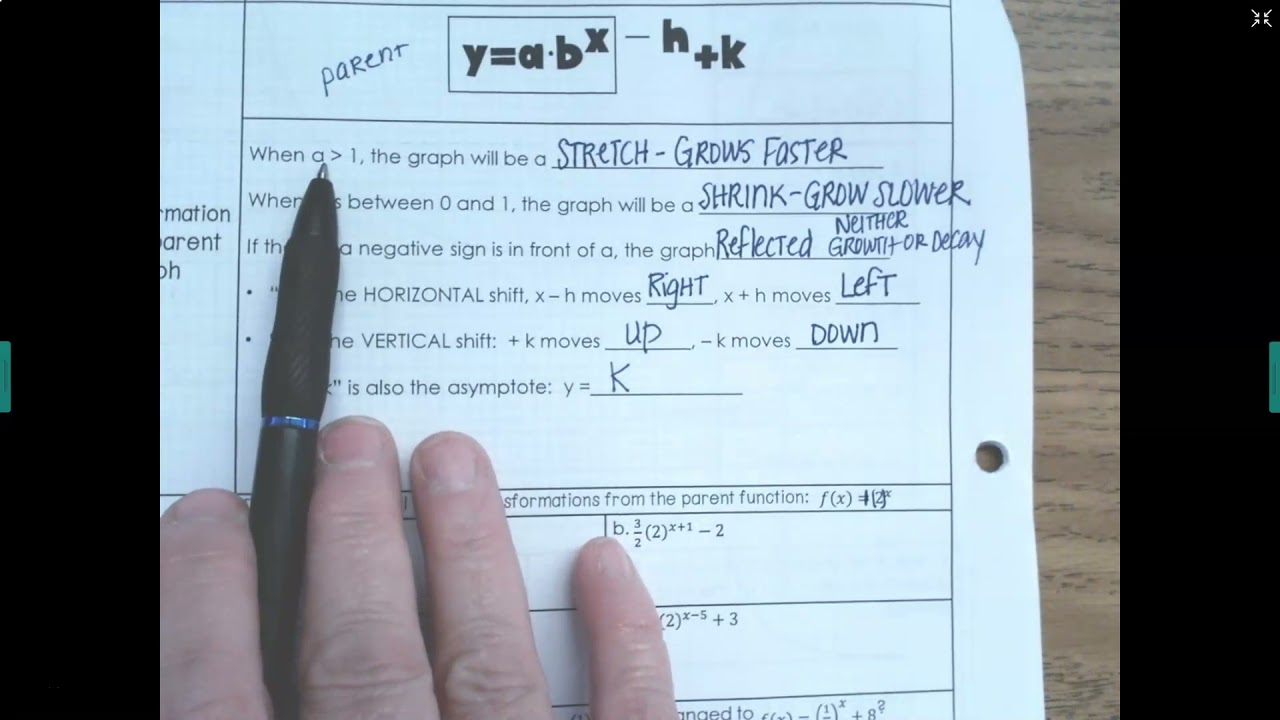 parent
y=a·bˣ − h +k
When a > 1, the graph will be a STRETCH - GROWS FASTER
When s between 0 and 1, the graph will be a SHRINK-GROW SLOWER
rmation
arent
ph
NEITHER
If the a negative sign is in front of a, the graph Reflected GROWTH OR DECAY
• " he HORIZONTAL shift, x – h moves RIGHT, x + h moves LEFT
• he VERTICAL shift: + k moves UP, – k moves DOWN
k" is also the asymptote: y = K
sformations from the parent function: f(x) = (2)ˣ
b. 3/2 (2)ˣ⁺¹ – 2
(2)ˣ⁻⁵ + 3
anged to f(x) = (1/ )ˣ + 8?